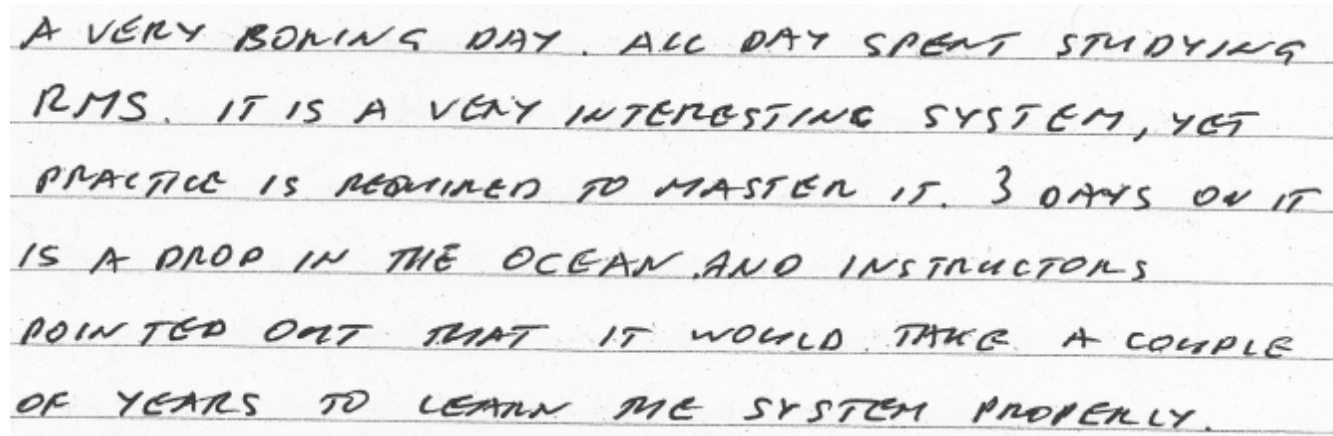 A VERY BORING DAY. ALL DAY SPENT STUDYING
RMS. IT IS A VERY INTERESTING SYSTEM, YET
PRACTICE IS REQUIRED TO MASTER IT. 3 DAYS ON IT
IS A DROP IN THE OCEAN AND INSTRUCTORS
POINTED OUT THAT IT WOULD TAKE A COUPLE
OF YEARS TO LEARN THE SYSTEM PROPERLY.